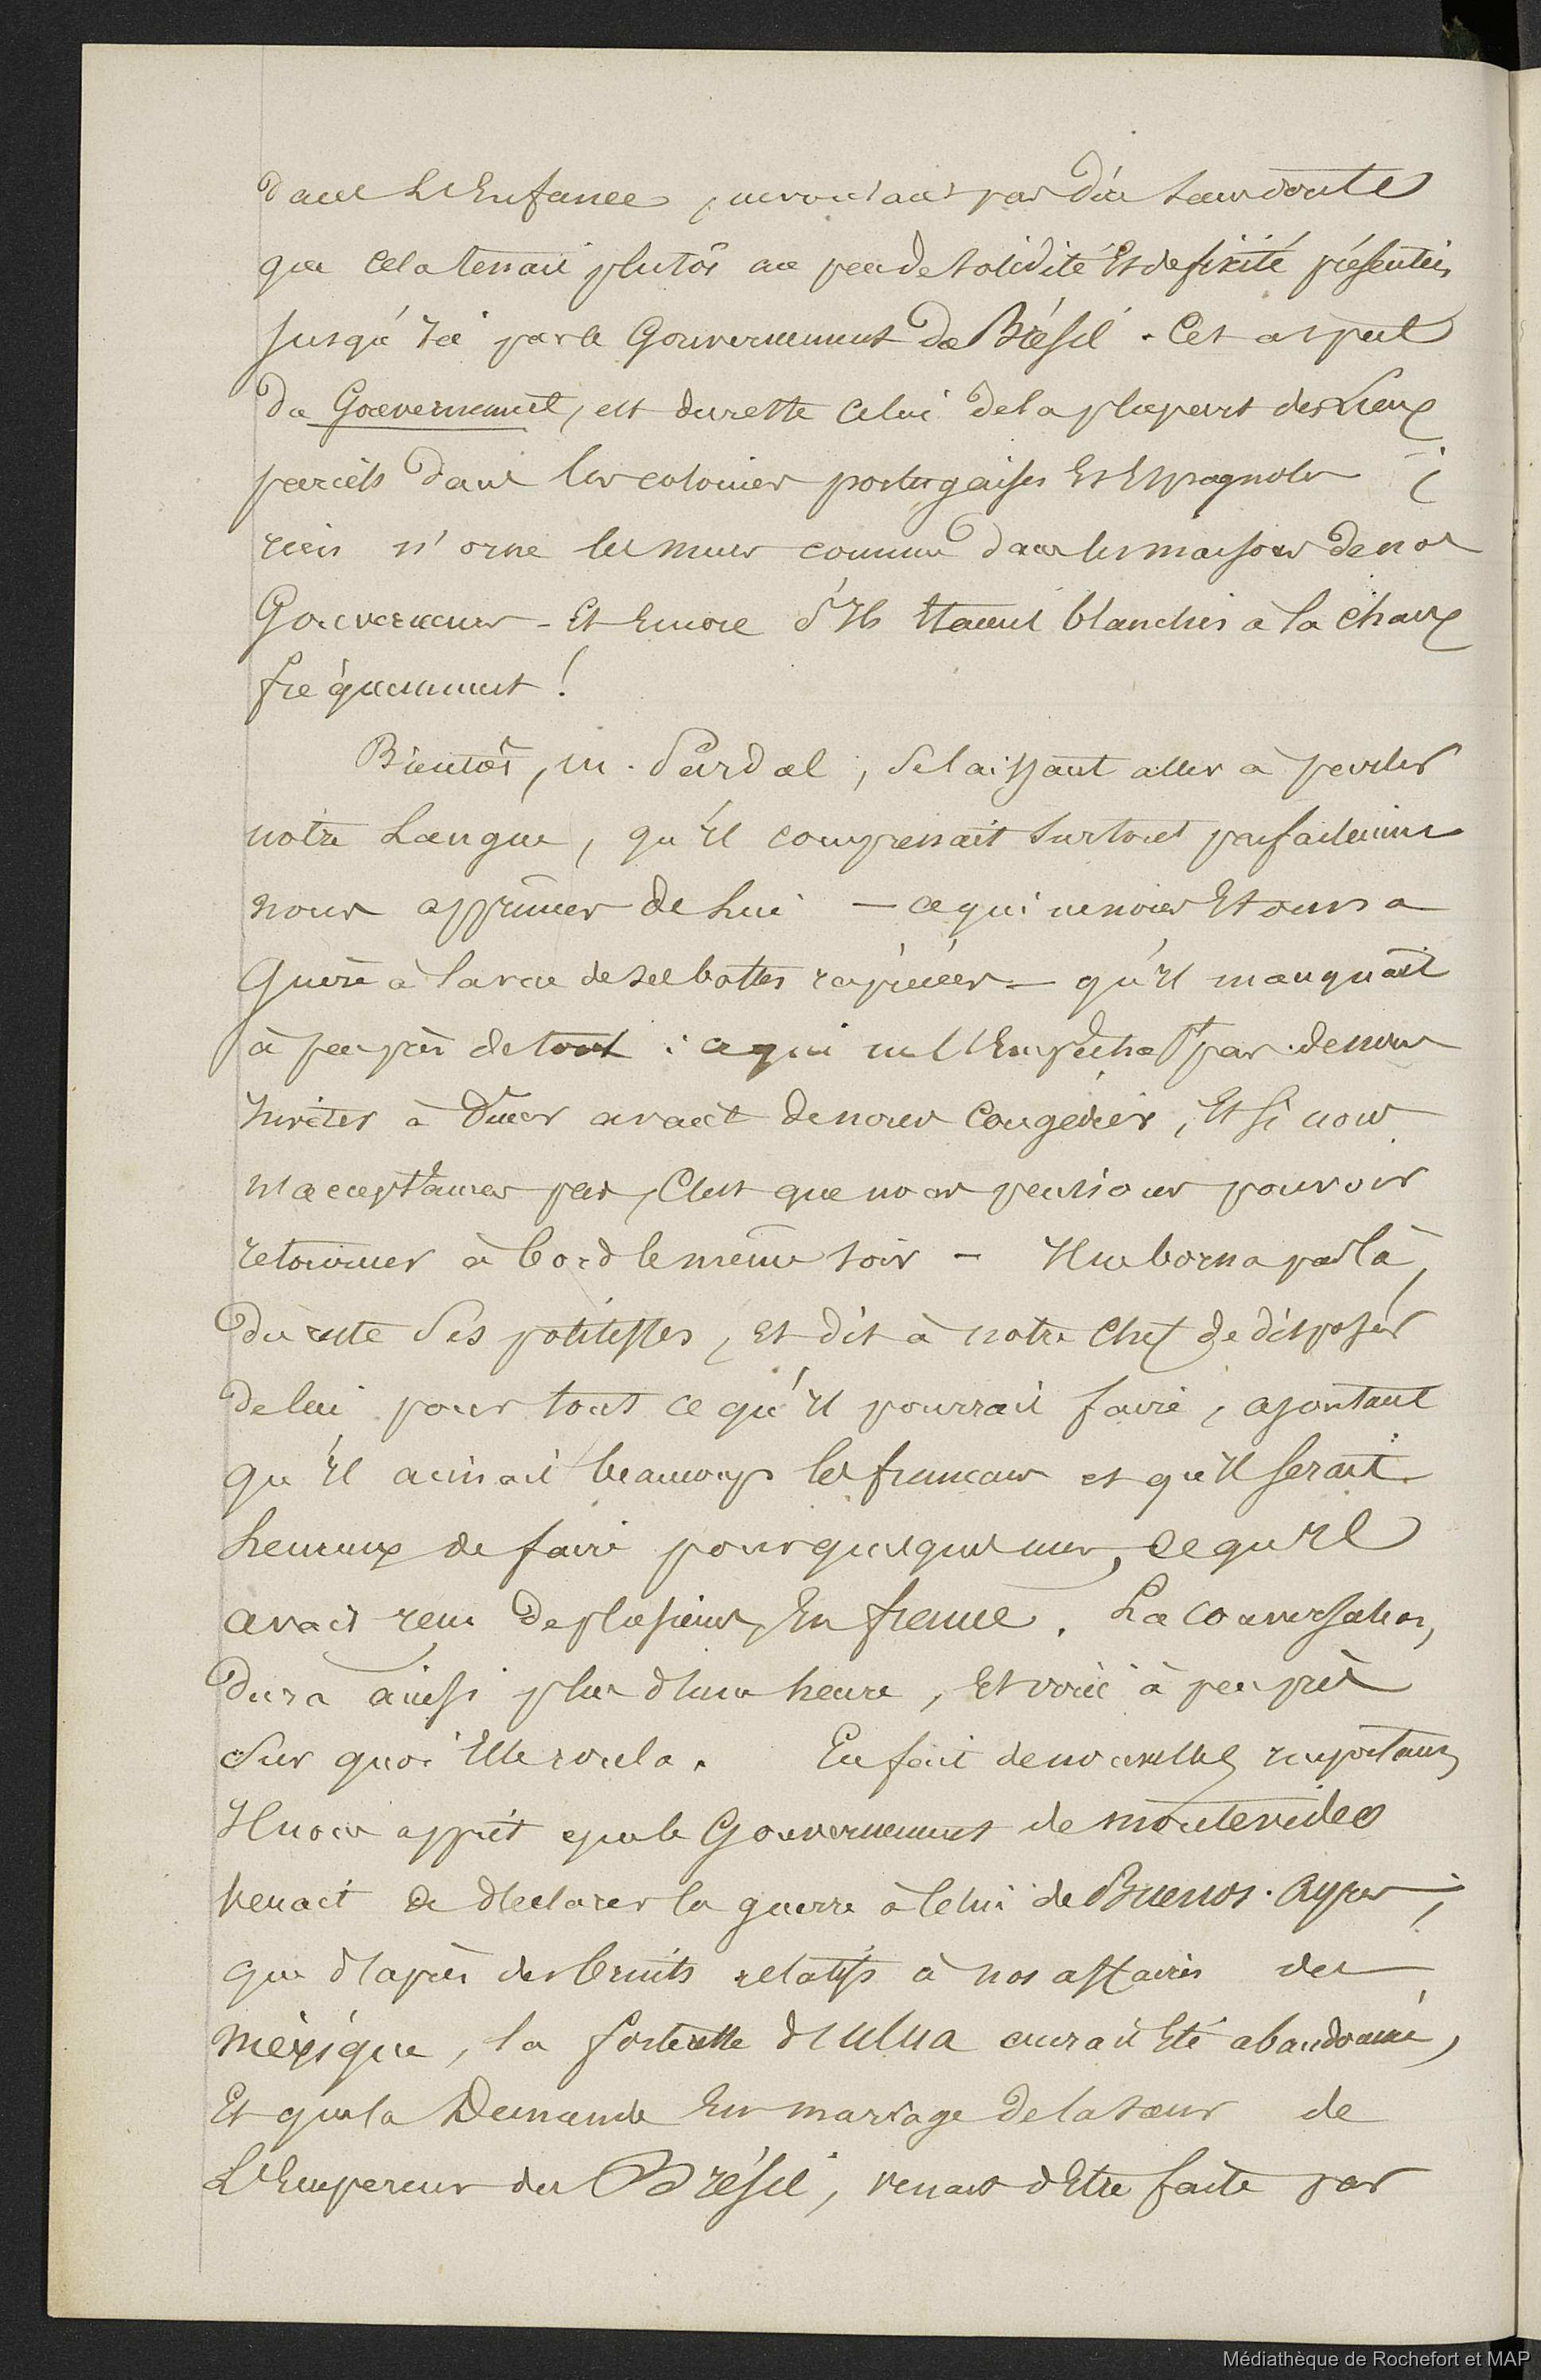 dans L'Enfance, ne voulait pas dire sans doute
que cela tenait plutôt au peu de solidité Et de fixité présentées
jusqu'ici par le Gouvernement du Brésil. Cet aspect
du Gouvernement, est du reste celui de la plupart des Lieux
pareils dans les colonies portugaises Et Espagnoles ;
rien n'orne les murs comme dans les maisons de nos
Gouverneurs - Et Encore s'Ils Etaient blanchis à la chaux
fréquemment !
Bientôt, M. Pardal, se laissant aller à parler
notre Langue, qu'Il comprenait surtout parfaitement
nous apprimes de Lui - ce qui ne nous Etonna
Guère à la vue de ses bottes rapiécées - qu'Il manquait
à peu près de tout : ce qui ne l'Empêcha pas de nous
Inviter à Dîner avant de nous Congédier, Et si nous
n'acceptames pas, C'est que nous pensions pouvoir
retourner à bord le même soir - Il ne borna pas là,
du reste ses politesses, et dit à notre Chef de disposer
de lui pour tout ce qu'Il pourrait faire, ajoutant
qu'Il aimait beaucoup les francais et qu'Il serait
heureux de faire pour quelques uns, ce qu'Il
avait recu de plusieurs En france. La conversation,
dura ainsi plus d'une heure, Et voici à peu près
sur quoi Elle roula. En fait de nouvelles importantes
Il nous apprit que le Gouvernement de Montevideo
venait de déclarer la guerre à Celui de Buenos-Ayres ;
que d'après des bruits relatifs à nos affaires du
Méxique, la forteresse d'Ulua aurait Eté abandonnée,
Et que la Demande En mariage de la sœur de
L'Empereur du Brésil, venait d'Etre faite par
Médiathèque de Rochefort et MAP